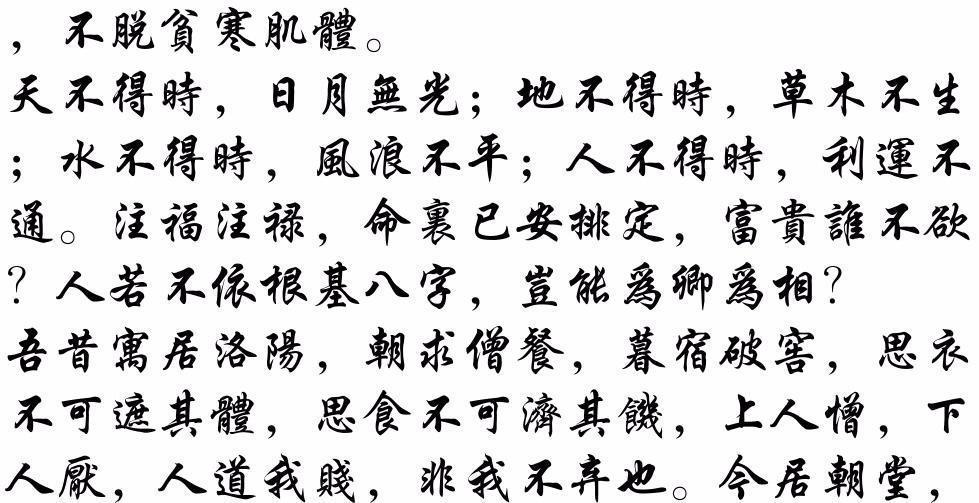 ，不脱貧寒肌體。
天不得時，日月無光；地不得時，草木不生
；水不得時，風浪不平；人不得時，利運不
通。注福注禄，命裏已安排定，富貴誰不欲
？人若不依根基八字，豈能爲卿爲相？
吾昔寓居洛陽，朝求僧餐，暮宿破窖，思衣
不可遮其體，思食不可濟其饑，上人憎，下
人厭，人道我賤，非我不弃也。今居朝堂，